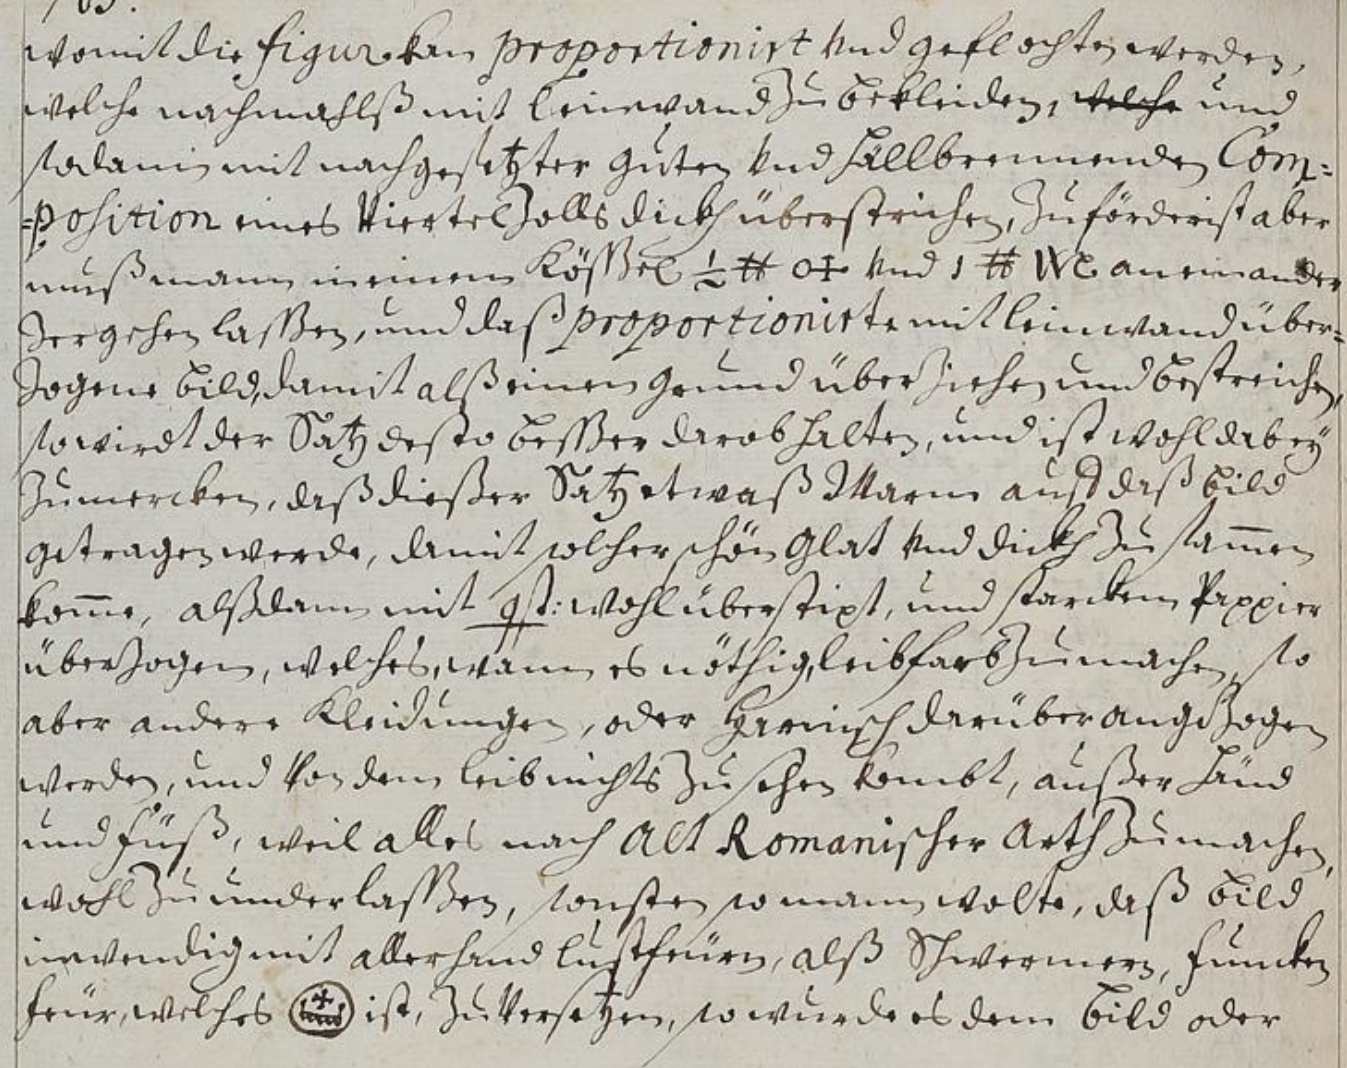 womit die figur kan proportionirt und geflochten werden,
welche nachmahlß mit leinwand zu bekleiden, welche und
sodann mit nachgesetzter guten und hällbrennenden Com-
-position eines Viertel Zolls dickh überstrichen, Zuförderist aber
muß mann in einem Kößel ½ ℔ und 1 ℔ aneinander
zergehen laßen, und daß proportionirte mit leinwand über-
zogene bild, damit alß einen grund überziehen und bestreichen,
so wirdt der Satz desto beßer darob halten, und ist wohl dabey
zumercken, daß dießer Satz etwaß Warm auf daß bild
getragen werde, damit solcher schön glat und dickh zusam̄en
kom̄e, alßdann mit wohl überstipt, und starckem Pappier
überzogen, welches, wann es nöthig, leibfarb zumachen, so
aber andere Kleidungen, oder Harnisch darüber angezogen
werden, und von dem leib nichts zu sehen kombt, außer Händ
und füß, weil alles nach Alt Romanischer Arth zumachen,
wohl zu underlaßen, sonsten so mann wolte, daß bild
inwendig mit allerhand lustfeürn, alß Schwermern, funcken
feür, welches ist, zu Versetzen, so wurde es dem bild oder